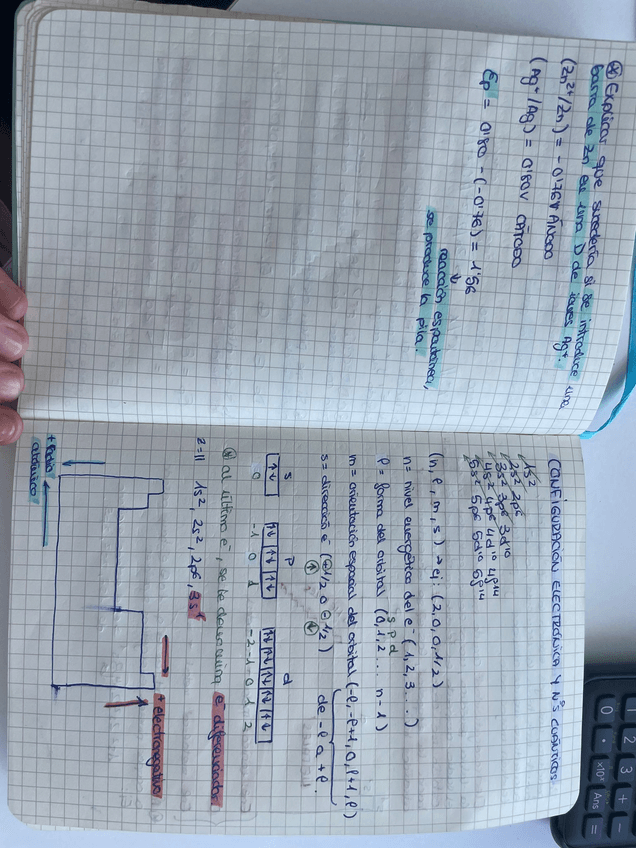 ⊛ Explicar que sucedería si se introduce una
barra de Zn en una D de iones Ag⁺.
(Zn²⁺/Zn) = -0'76V ÁNODO
(Ag⁺/Ag) = 0'80V CÁTODO
Ep = 0'80 - (-0'76) = 1'56
↓
reacción espontánea,
se produce la pila.
CONFIGURACIÓN ELECTRÓNICA Y NºS CUÁNTICOS
1s²
2s² 2p⁶
3s² 3p⁶ 3d¹⁰
4s² 4p⁶ 4d¹⁰ 4f¹⁴
5s² 5p⁶ 5d¹⁰ 5f¹⁴
(n, l, m, s) → ej: (2, 0, 0, 1/2)
n = nivel energético del e⁻ (1, 2, 3 ...)
l = forma del orbital (0, 1, 2 ... n-1)
s p d
m = orientación espacial del orbital (-l, -l+1, 0, l+1, l)
de -l a +l.
s = dirección e⁻ (⊕1/2 o ⊖1/2)
↑ ↓
s p d
↑↓ ↑↓ ↑↓ ↑↓ ↑↓ ↑↓ ↑↓ ↑↓ ↑↓
0 -1 0 1 -2 -1 0 1 2
⊛ al último e⁻, se le denomina e⁻ diferenciador
z=11 1s², 2s², 2p⁶, 3s¹
+ electronegativo
+ Radio
atómico
0 . x10ˣ Ans =
1 2 3 + -